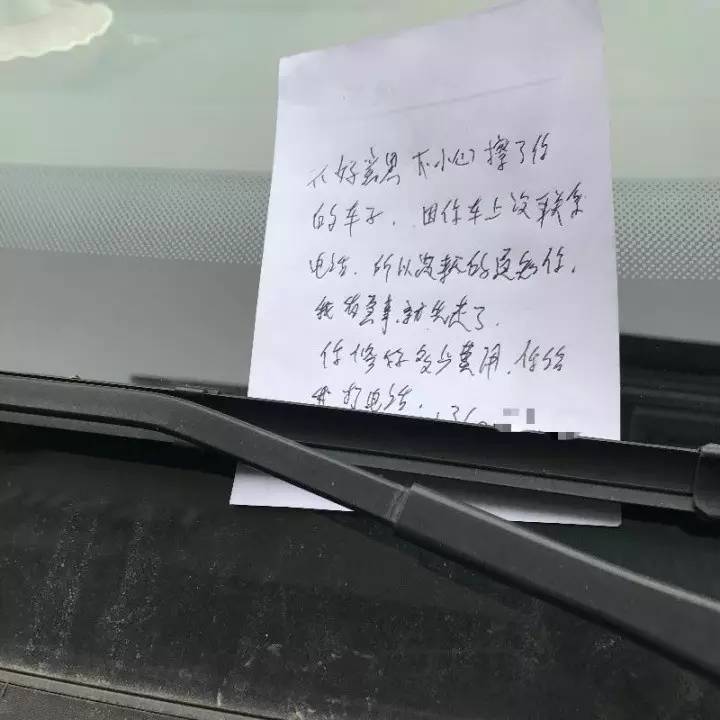 不好意思 不小心擦了你
的车子, 因你车上没联系
电话, 所以没办法通知你,
我有急事, 就先走了.
你修好多少费用, 你给
我打电话: 136